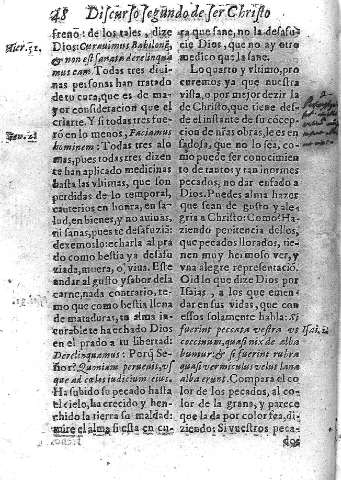 48 Discurso segundo de ser Christo
Hier. 51.
freno: de los tales, dize
Dios: Curauimus Babilonē,
& non est sanata derelinqua
mus eam. Todas tres diui
nas personas han tratado
de tu cura, que es la ma-
yor consideracion que el
criarte. Y si todas tres fue
Gen. 1.
rō en lo menos, Faciamus
hominem: Todas tres alo
mas, pues todas tres dizen
te han aplicado medicinas
hasta las vltimas, que son
perdidas de lo temporal,
cauterios en honra, en sa-
lud, en bienes, y no auiuas,
ni sanas, pues te desafuzia:
dexemoslo: echarla al pra
do como bestia ya desafu
ziada, muera, o, viua. Este
andar al gusto y sabor de la
carne, nada contrario, te-
mo que como bestia llena
de mataduras, tu alma in-
curable te ha echado Dios
en el prado a tu libertad:
Derelinquamus: Porq̄ Se-
ñor? Quoniam peruenit, vs
que ad cœlos iudicium eius.
Ha subido su pecado hasta
el cielo, ha crecido y hen-
chido la tierra su maldad:
mire el alma si esta en cu-
ra que sane, no la desafu
cie Dios, que no ay otro
medico que la sane.
Lo quarto y vltimo, pro
curemos ya que nuestra
vista, o por mejor dezir la
de Christo, que tiene des-
de el instante de su cōcep
cion de n̄ras obras, le es en
fadosa, que no lo sea, co-
mo puede ser conocimien
to de tantos y tan inormes
pecados, no dar enfado a
Dios. Puedes alma hazer
que sean de gusto y ale-
gria a Christo: Como? Ha
ziendo penitencia dellos,
que pecados llorados, tie-
nen muy hermoso ver, y
vna alegre representaciō.
Oid lo que dize Dios por
Isaias, a los que emien-
dan en sus vidas, que con
essos solamente habla: Si
fuerint peccata vestra vs
Isai. 1.
coccinum, quasi nix de alba
buntur: & si fuerint rubra
quasi vermiculus velut lana
alba erunt. Compara el co
lor de los pecados, al co-
lor de la grana, y parece
que la da por color fea, di-
ziendo: Si vuestros peca-
dos